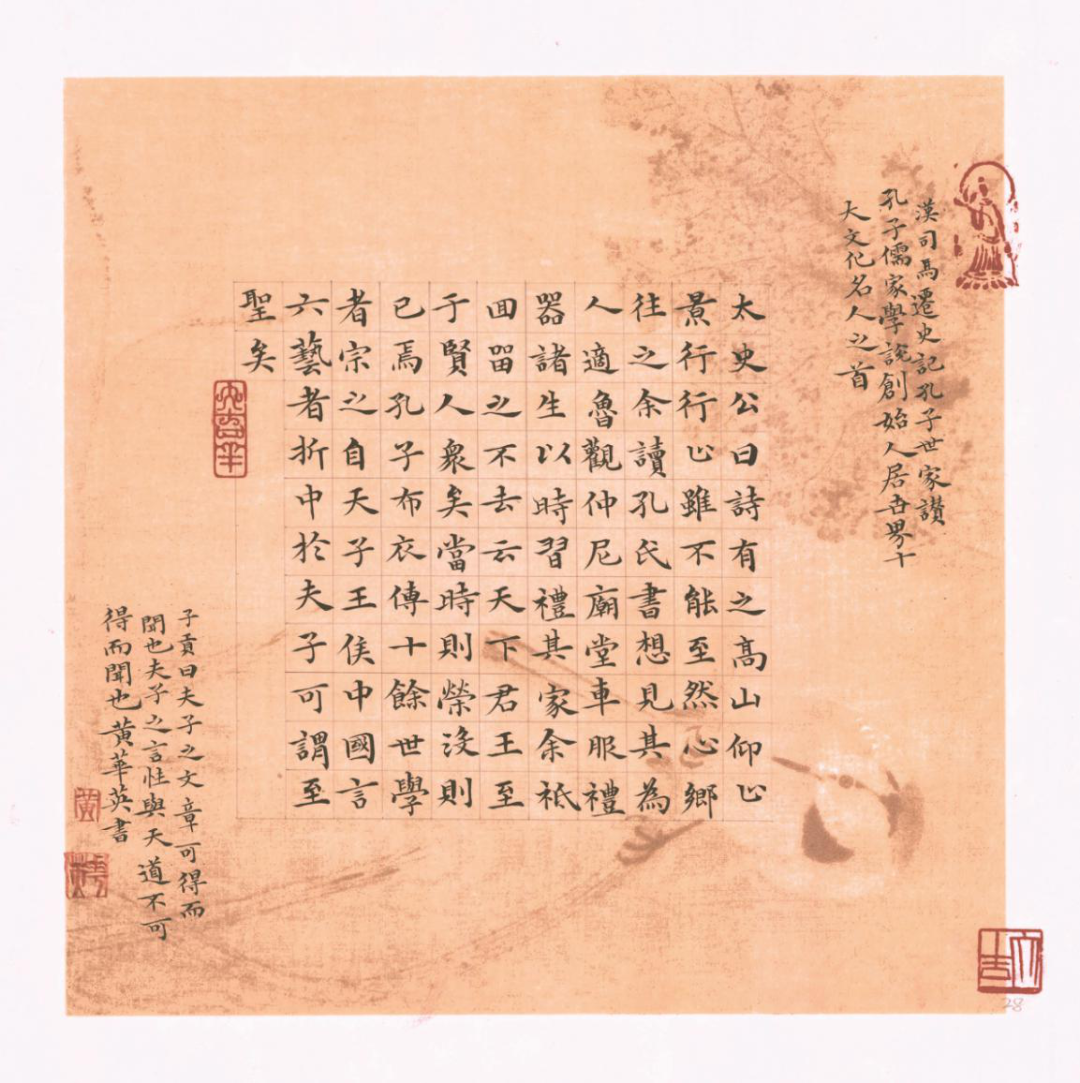 漢司馬遷史記孔子世家讃
孔子儒家學説創始人居世界十
大文化名人之首
太史公曰詩有之高山仰止
景行行止雖不能至然心鄉
往之余讀孔氏書想見其為
人適魯觀仲尼廟堂車服禮
器諸生以時習禮其家余祗
回留之不去云天下君王至
于賢人衆矣當時則榮沒則
已焉孔子布衣傳十餘世學
者宗之自天子王侯中國言
六藝者折中於夫子可謂至
聖矣
大吉羊
子貢曰夫子之文章可得而
聞也夫子之言性與天道不可
得而聞也黃華英書
黃
大吉
28